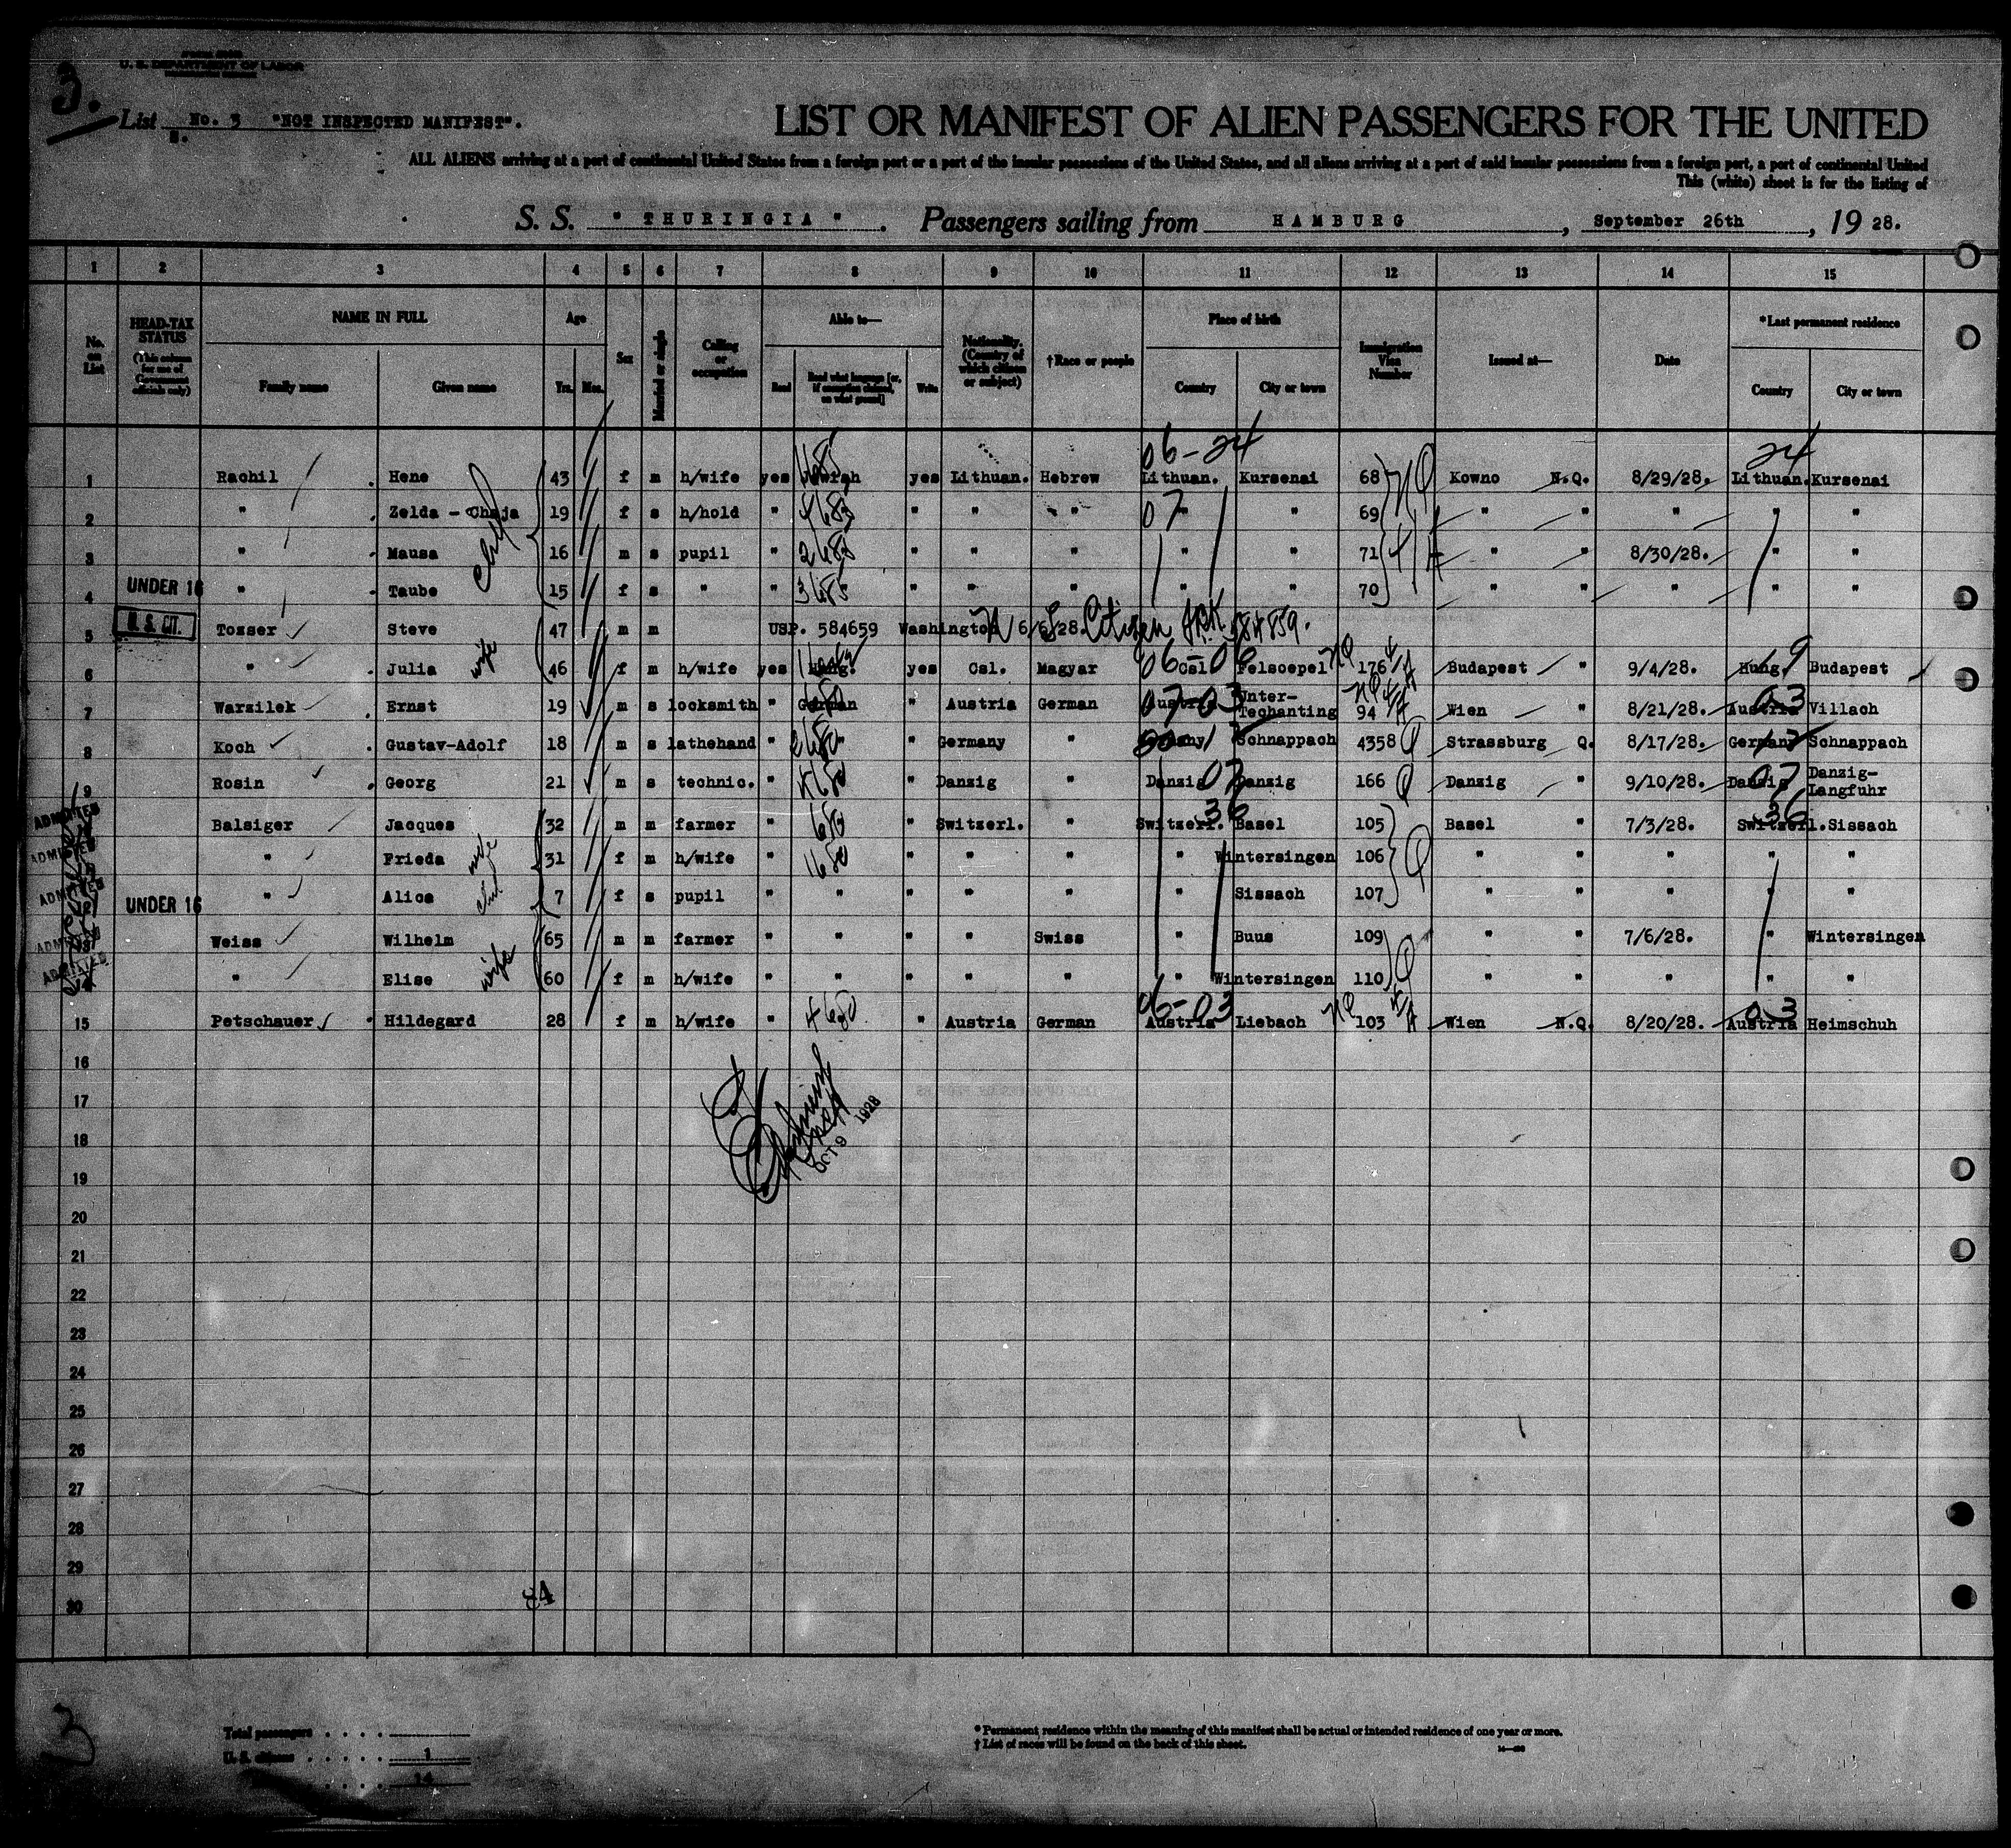 3.
U. S. DEPARTMENT OF LABOR
List No. 3 "NOT INSPECTED MANIFEST".
LIST OR MANIFEST OF ALIEN PASSENGERS FOR THE UNITED
ALL ALIENS arriving at a port of continental United States from a foreign port or a port of the insular possessions of the United States, and all aliens arriving at a port of said insular possessions from a foreign port, a port of continental United
This (white) sheet is for the listing of
S. S. " THURINGIA ". Passengers sailing from HAMBURG, September 26th, 1928.
1 2 3 4 5 6 7 8 9 10 11 12 13 14 15
No. on List
HEAD-TAX STATUS (This column for use of Government officials only)
NAME IN FULL Family name Given name
Age Yrs. Mos.
Sex
Married or single
Calling or occupation
Able to— Read Read what language [or, if exemption claimed, on what ground] Write
Nationality. (Country of which citizen or subject)
†Race or people
Place of birth Country City or town
Immigration Visa Number
Issued at—
Date
*Last permanent residence Country City or town
06-24 24
1 Rachil Hene 43 f m h/wife yes yes Lithuan. Hebrew Lithuan. Kursenai 68 NQ Kowno N.Q. 8/29/28. Lithuan. Kursenai
2 " Zelda - Chaja 19 f s h/hold " " " " 07 " " 69 " " " " "
3 " Mausa 16 m s pupil " " " " " " 71 " " 8/30/28. " "
4 UNDER 16 " Taube 15 f s " " " " " " " 70 " " " " "
5 U. S. CIT. Tozser Steve 47 m m USP. 584659 Washington 6/6/28. U S Citizen 584859.
6 " Julia wife 46 f m h/wife yes Hung. yes Csl. Magyar Csl Felsoepel NQ 176 Budapest " 9/4/28. Hung. Budapest
7 Warzilek Ernst 19 m s locksmith " German " Austria German Austria Unter-Techanting NQ 94 Wien " 8/21/28. Austria Villach
8 Koch Gustav-Adolf 18 m s lathehand " " Germany " Schnappach 4358 Q Strassburg Q. 8/17/28. Germany Schnappach
9 Rosin Georg 21 m s technic. " " Danzig " Danzig 07 Danzig 166 Q Danzig " 9/10/28. Danzig 07 Danzig-Langfuhr
ADMITTED Balsiger Jacques 32 m m farmer " " Switzerl. " Switzerl. 36 Basel 105 Basel " 7/3/28. Switzerl. 36 Sissach
ADMITTED " Frieda wife 31 f m h/wife " " " " " Wintersingen 106 Q " " " " "
ADMITTED UNDER 16 " Alice child 7 f s pupil " " " " " " Sissach 107 " " " " "
ADMITTED Weiss Wilhelm 65 m m farmer " " " " Swiss " Buus 109 " " 7/6/28. " Wintersingen
ADMITTED " Elise wife 60 f m h/wife " " " " " " Wintersingen 110 Q " " " " "
15 Petschauer Hildegard 28 f m h/wife " " Austria German 06-03 Austria Liebach NQ 103 Wien N.Q. 8/20/28. 03 Austria Heimschuh
16
17
OCT 9 1928
18
19
20
21
22
23
24
25
26
27
28
29
30
84
3
Total passengers . . . .
U. S. citizens . . . . . 1
. . . . 14
* Permanent residence within the meaning of this manifest shall be actual or intended residence of one year or more.
† List of races will be found on the back of this sheet.